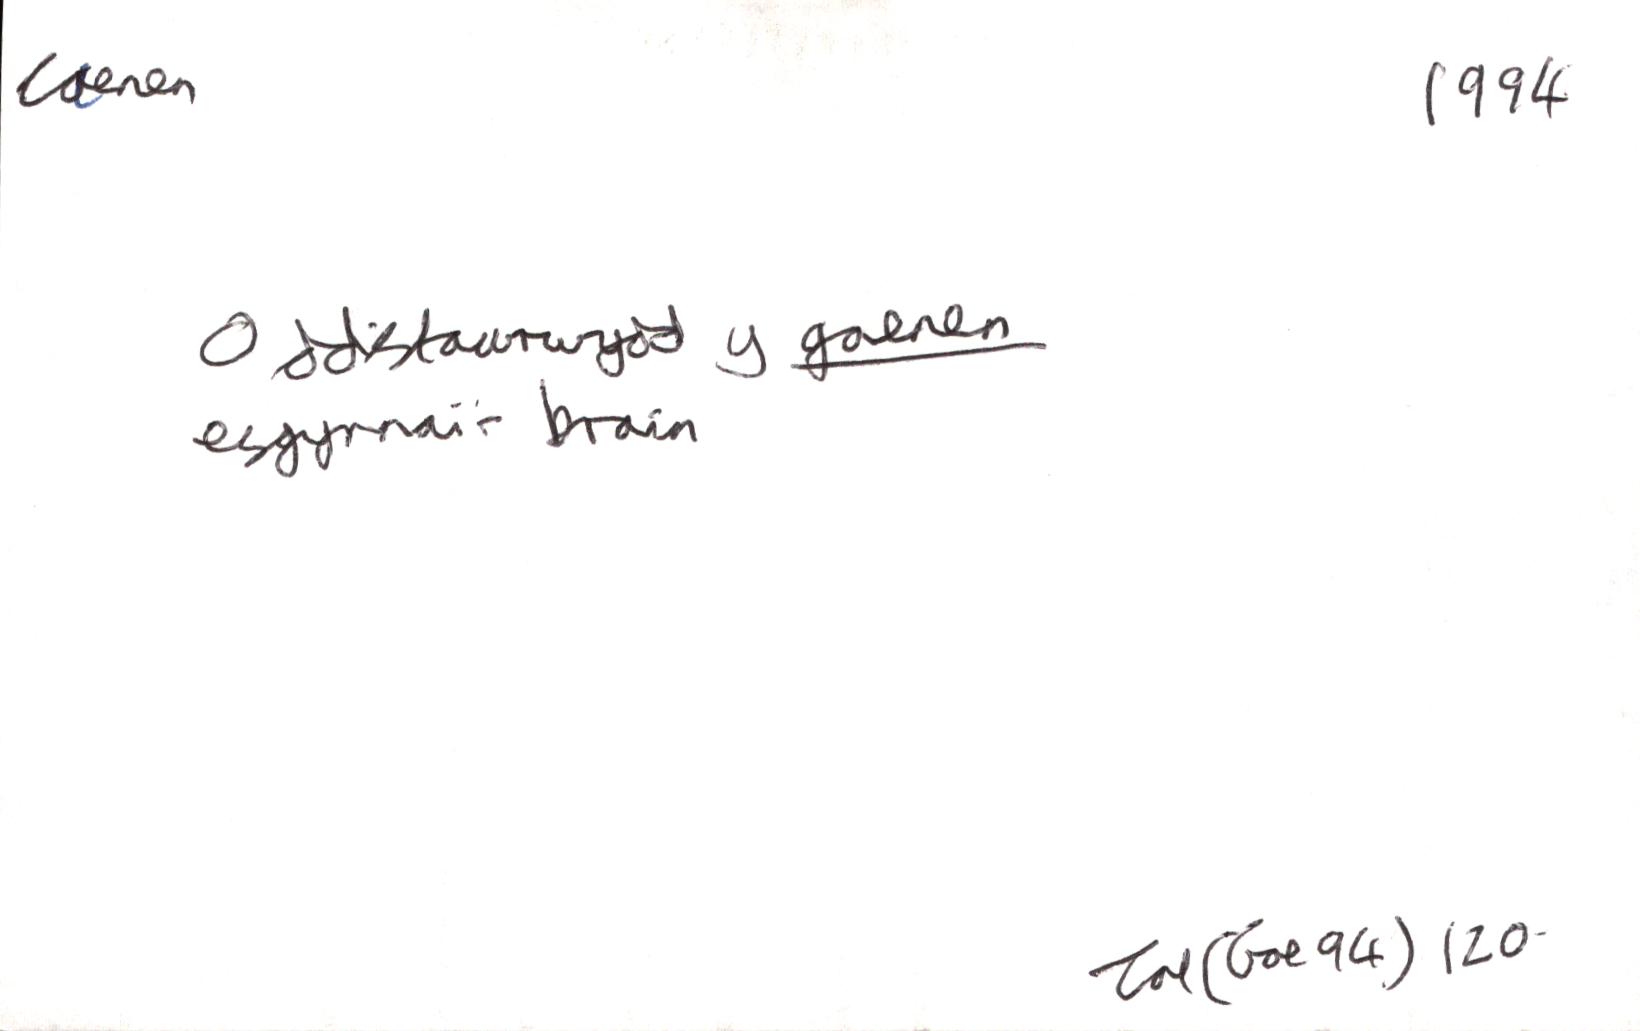 Caenen 1994
O ddistawrwydd y gaenen
esgyrnai'r brain
Tal (Goe 94) 120